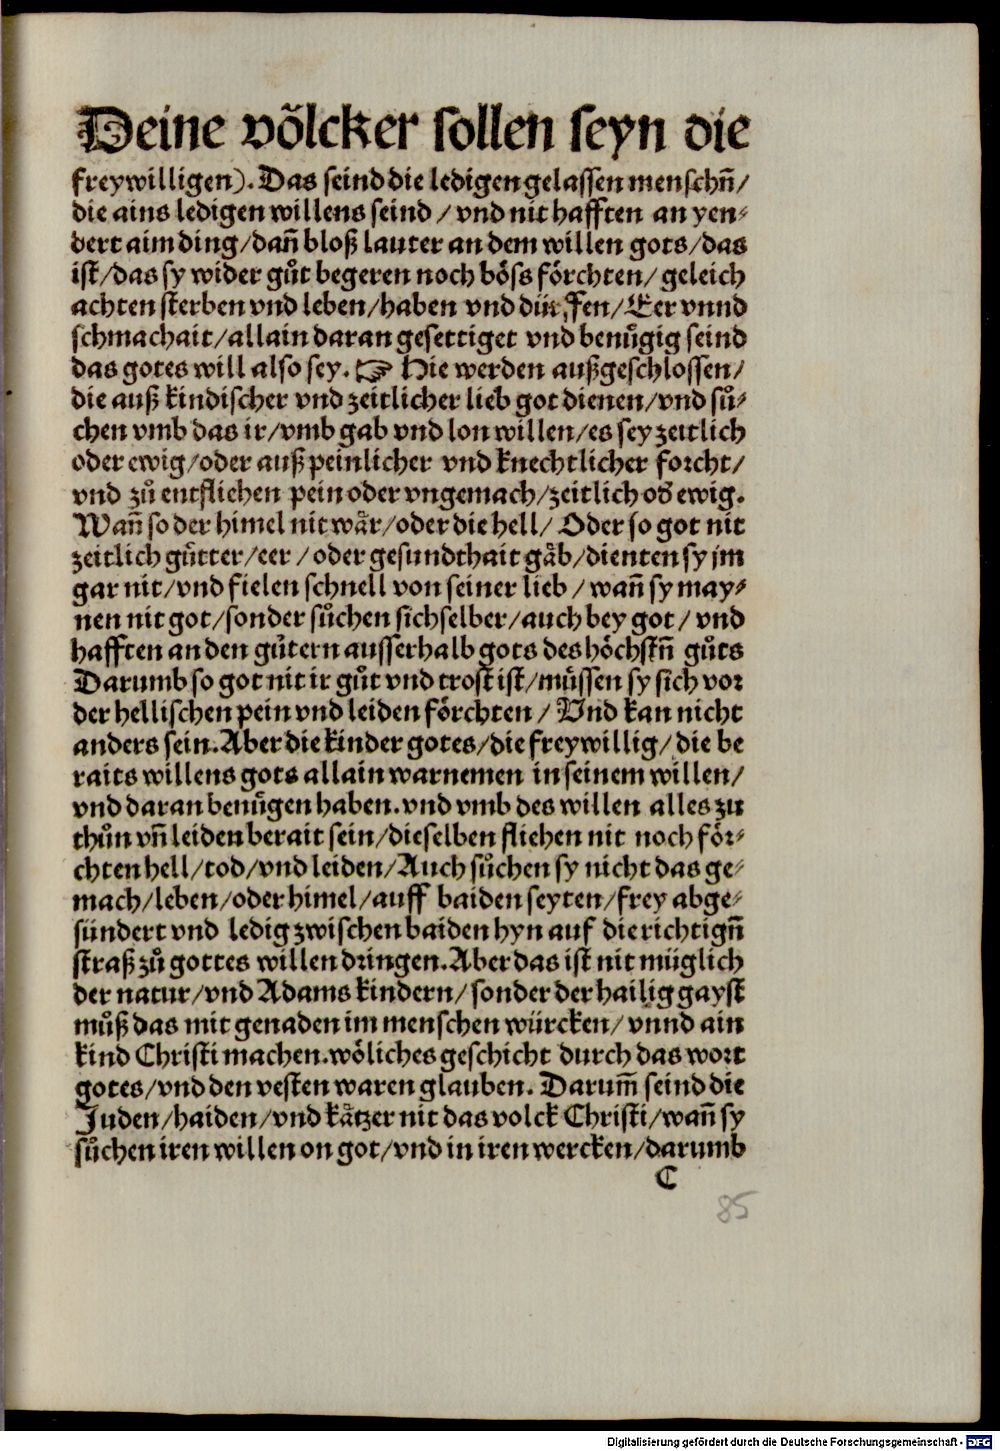 Deine võlcker sollen seyn die
freywilligen). Das seind die ledigen gelassen menschn̄/
die ains ledigen willens seind / vnd nit hafften an yen⸗
dert aim ding/dan̄ bloß lauter an dem willen gots/das
ist/das sy wider gůt begeren noch böss förchten/ geleich
achten sterben vnd leben/haben vnd dürffen/Eer vnnd
schmachait/allain daran gesettiget vnd benůgig seind
das gotes will also sey. ☞ Hie werden außgeschlossen/
die auß kindischer vnd zeitlicher lieb got dienen/vnd sů⸗
chen vmb das ir/vmb gab vnd lon willen/es sey zeitlich
oder ewig/oder auß peinlicher vnd knechtlicher forcht/
vnd zů entfliehen pein oder vngemach/zeitlich od̕ ewig.
Wan̄ so der himel nit wär/oder die hell/ Oder so got nit
zeitlich gůtter/eer / oder gesundthait gäb/dienten sy jm
gar nit/vnd fielen schnell von seiner lieb / wan̄ sy may⸗
nen nit got/sonder sůchen sichselber/auch bey got/ vnd
hafften an den gůtern ausserhalb gots des höchstn̄ gůts
Darumb so got nit ir gůt vnd trost ist/müssen sy sich vor
der hellischen pein vnd leiden förchten / Vnd kan nicht
anders sein.Aber die kinder gotes/die freywillig/die be
raits willens gots allain warnemen in seinem willen/
vnd daran benůgen haben.vnd vmb des willen alles zu
thůn vn̄ leiden berait sein/dieselben fliehen nit noch för⸗
chten hell/tod/vnd leiden/Auch sůchen sy nicht das ge⸗
mach/leben/oder himel/auff baiden seyten/frey abge⸗
sündert vnd ledig zwischen baiden hyn auf die richtign̄
straß zů gottes willen dringen.Aber das ist nit müglich
der natur/vnd Adams kindern/sonder der hailig gayst
můß das mit genaden im menschen würcken/ vnnd ain
kind Christi machen.wöliches geschicht durch das wort
gotes/vnd den vesten waren glauben. Darum̄ seind die
Juden/haiden/vnd kätzer nit das volck Christi/wan̄ sy
sůchen iren willen on got/vnd in iren wercken/darumb
C
85
Digitalisierung gefördert durch die Deutsche Forschungsgemeinschaft - DFG